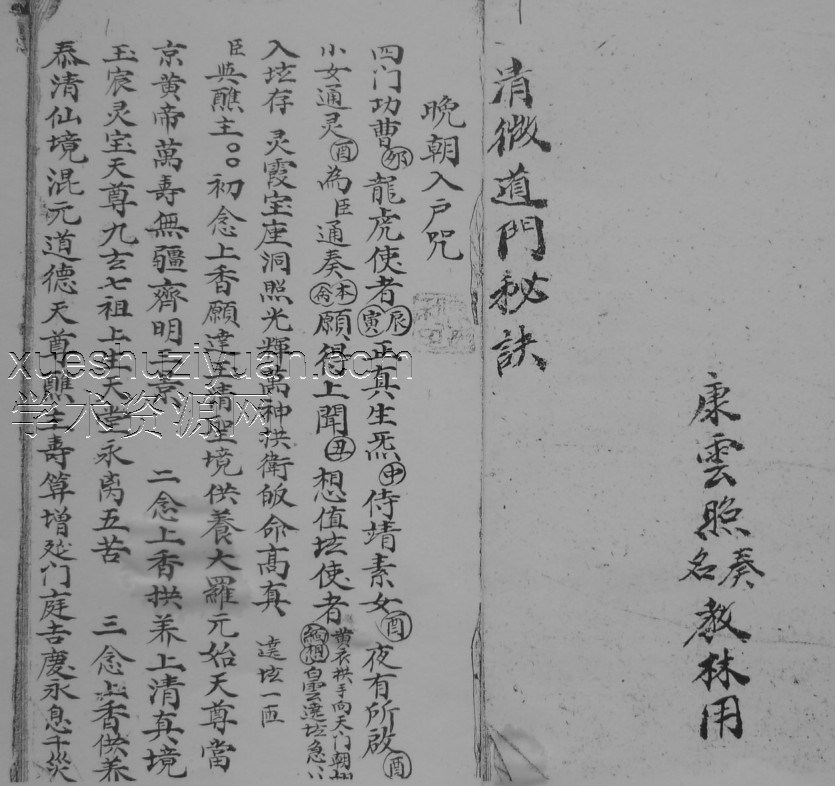 康雲照
奏名
教林用
清微道門秘訣
晚朝入户咒
四门功曹卯龍虎使者辰寅正真生炁申侍靖素女酉夜有所啟酉
小女通灵酉為臣通奏本命願得上聞丑想值坛使者黄衣拱手向天门朝
白雲遶坛急
入坛存 灵霞宝座洞照光輝萬神拱衛皈命高真 遶坛一匝
臣與醮主〇〇初念上香願達玉清聖境供養大羅元始天尊當
京黄帝萬壽無疆齊明三景 二念上香拱养上清真境
玉宸灵宝天尊九玄七祖上生天堂永离五苦 三念上香供养
泰清仙境混元道德天尊醮主壽算增延门庭吉慶永息千災
xueshuziyuan.com
学术资源网